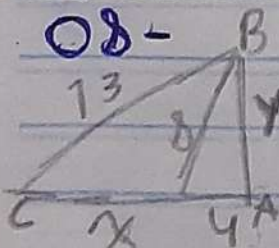 08-
B
13
8
y
C
x
4
A